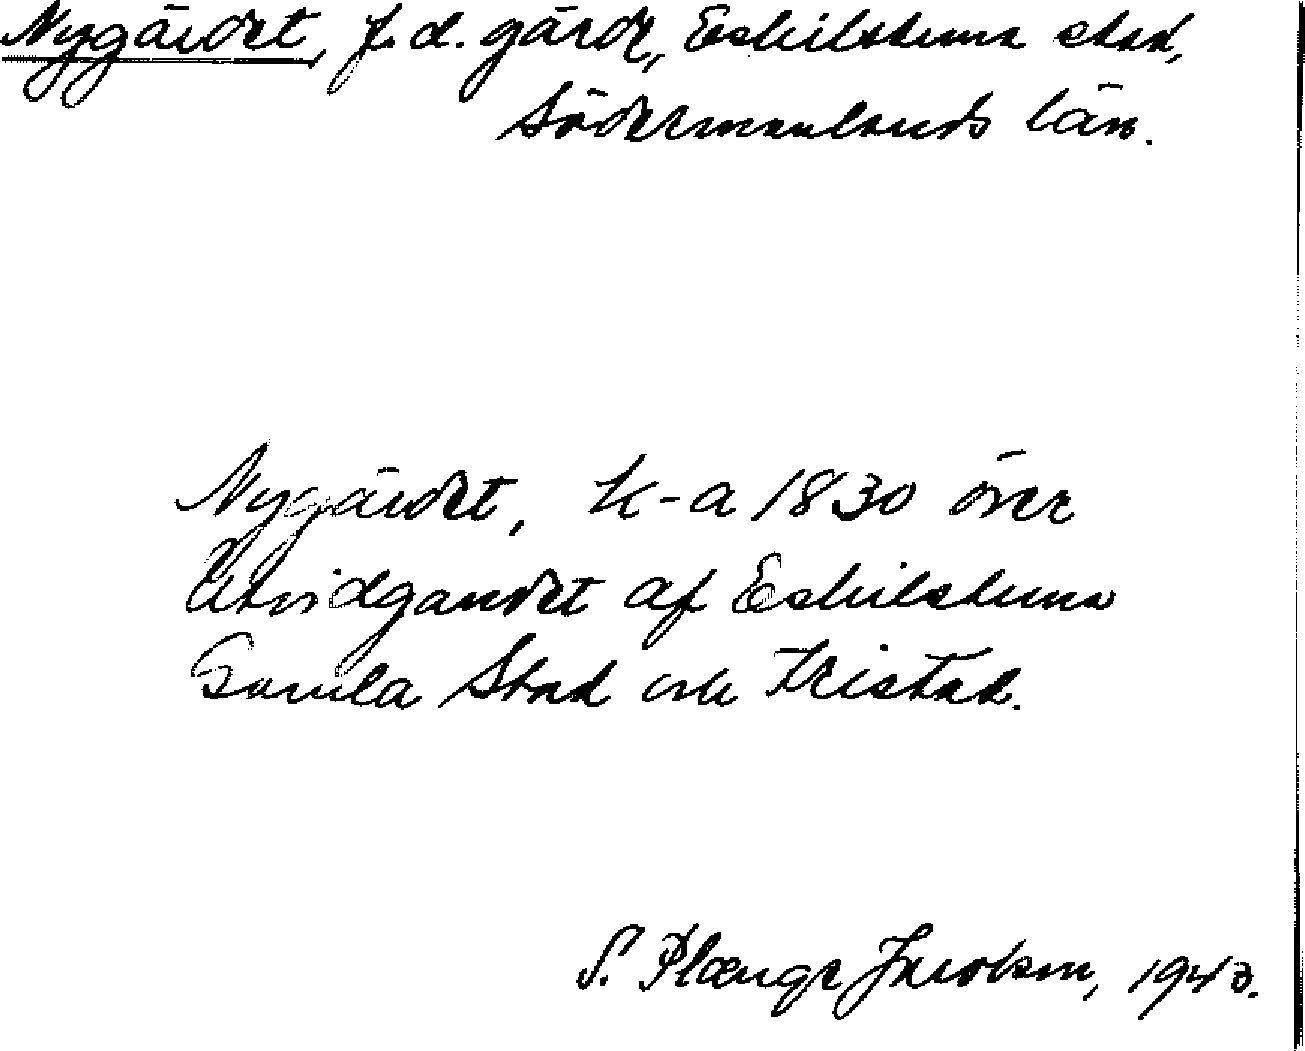 Nygärdet, f.d. gärde, Eskilstuna stad,
Södermanlands län.
Nygärdet, k-a 1830 över
Utvidgandet af Eskilstuna
Gamla Stad och Fristad.
S. Plænge Jacobson, 1943.